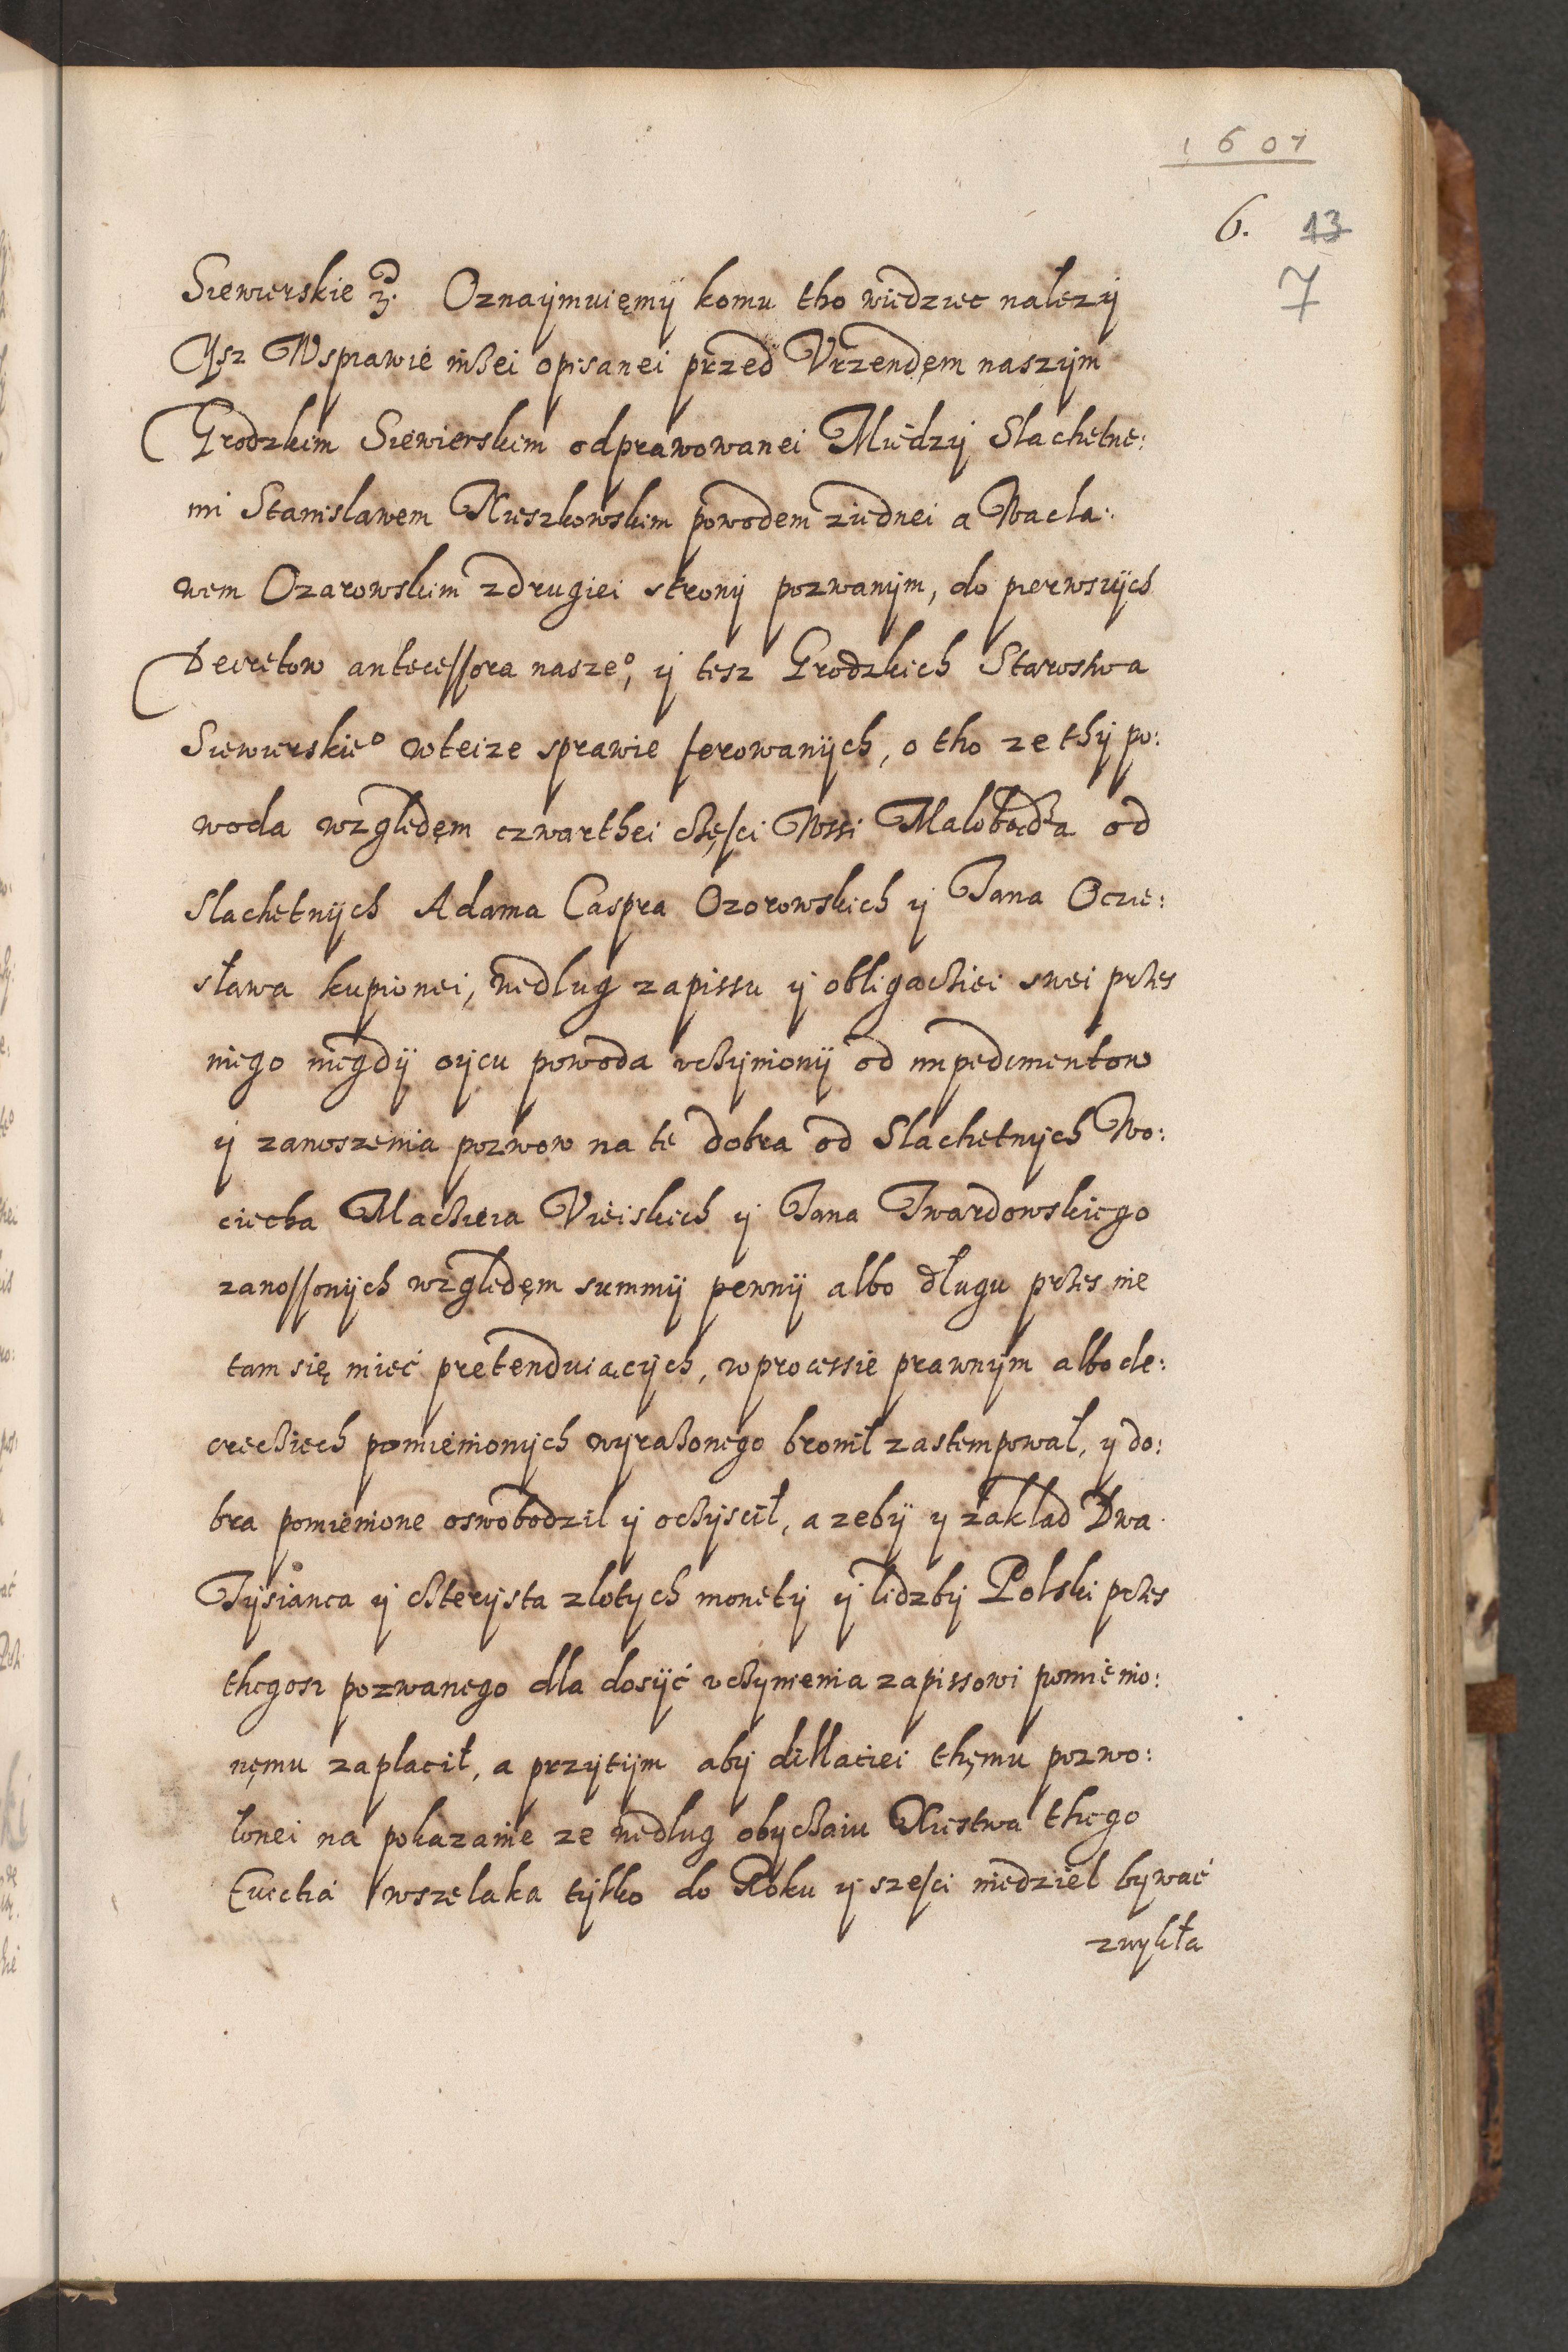 1607
6. 13
7
Siewierskie etc. Oznaÿmuięmÿ komu tho wiedziec nalezÿ
Ysz W sprawie niżei opisanei przed Vrzendęm naszÿm
Grodzkim Siewierskim odprawowanei Miedzÿ Slachetne:
mi Stanislawem Mieszkowskim powodem ziednei a Wacla:
wem Ozarowskim z drugiei stronÿ pozwanÿm, do pierwsÿch
Decretow antecessora nasze°, ÿ tesz Grodzkich Starostwa
Siewierskie° w teize sprawie ferowanÿch, o tho ze thÿ po:
woda względęm czwarthei części Wssi Malobądza od
Slachetnÿch Adama Caspra Ozorowskich ÿ Jana Ocie:
sława kupionei, wedlug zapissu ÿ obligaciei swei przes
niego niegdÿ oÿcu powoda uczÿnionÿ od impedimentow
ÿ zanoszenia pozwow na te dobra od Slachetnÿch Wo:
ciecha Macieia Uieiskich ÿ Jana Twardowskiego
zanossonÿch względęm summÿ pewnÿ albo długu przes nie
tam się mieć pretenduiącÿch, w processie prawnÿm albo de:
creciech pomienionÿch wÿrażonego bronił zastempował, ÿ do:
bra pomienione oswobodzil ÿ oczÿscił, a zebÿ ÿ zaklad Dwa
Tÿsianca ÿ czterÿsta zlotÿch monetÿ ÿ lidzbÿ Polski przes
thegosz pozwanego dla dosÿć uczÿnienia zapissowi pomienio:
nęmu zaplacił, a przÿtÿm abÿ dillaciei thęmu pozwo:
lonei na pokazanie ze wedlug obÿczaiu Xiestwa thego
Euictia wszelaka tÿlko do Roku ÿ sześci niedziel bywać
zwykła